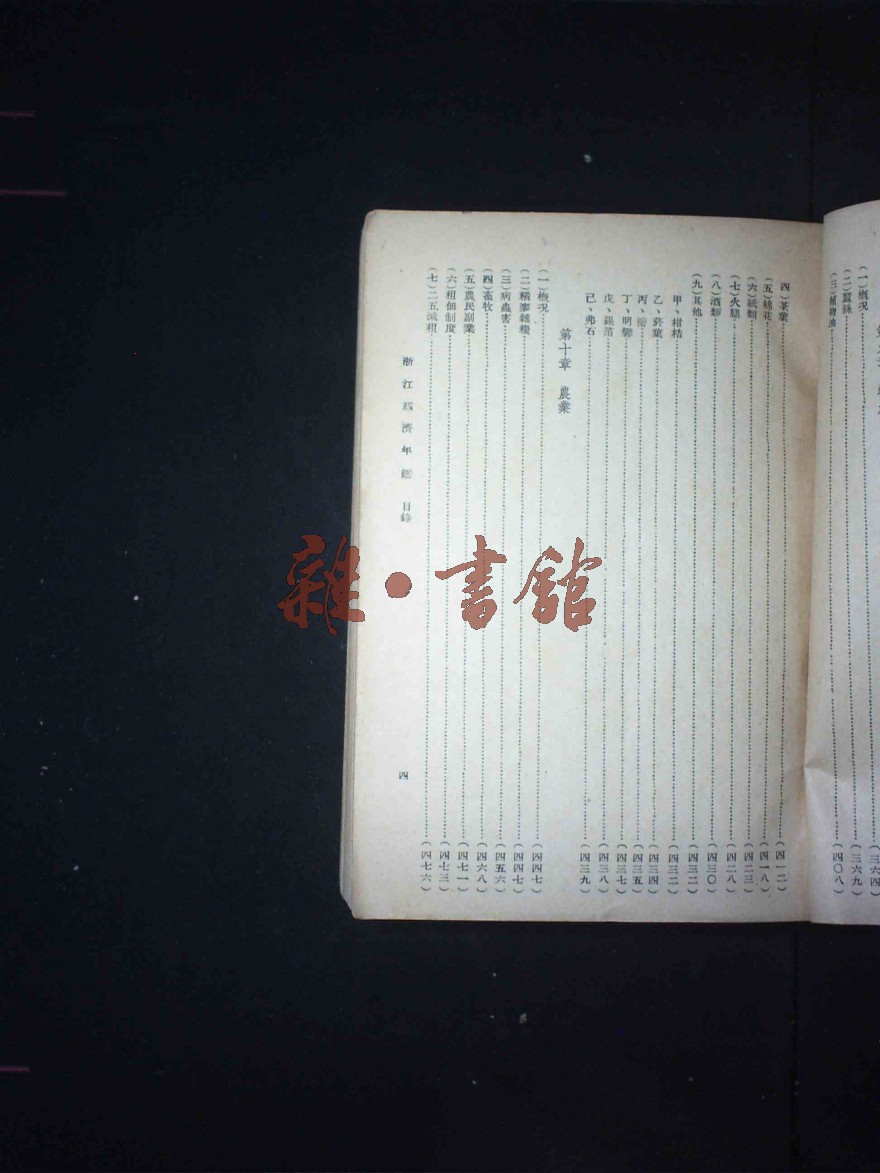 (一)概况……(三六四)
(二)蠶絲……(三六九)
(三)植物油……(四〇八)
(四)茶葉……(四一二)
(五)棉花……(四一八)
(六)紙類……(四二三)
(七)火腿……(四二八)
(八)酒類……(四三〇)
(九)其他……(四三二)
甲、柑桔……(四三二)
乙、菸葉……(四三四)
丙、……(四三五)
丁、明礬……(四三七)
戊、錫箔……(四三八)
己、弗石……(四三九)
第十章 農業
(一)概况……(四四七)
(二)稻麥雜糧……(四四七)
(三)病蟲害……(四五六)
(四)畜牧……(四六八)
(五)農民副業……(四七一)
(六)租佃制度……(四七三)
(七)二五減租……(四七六)
浙江經濟年鑑 目錄
四
雜·書館